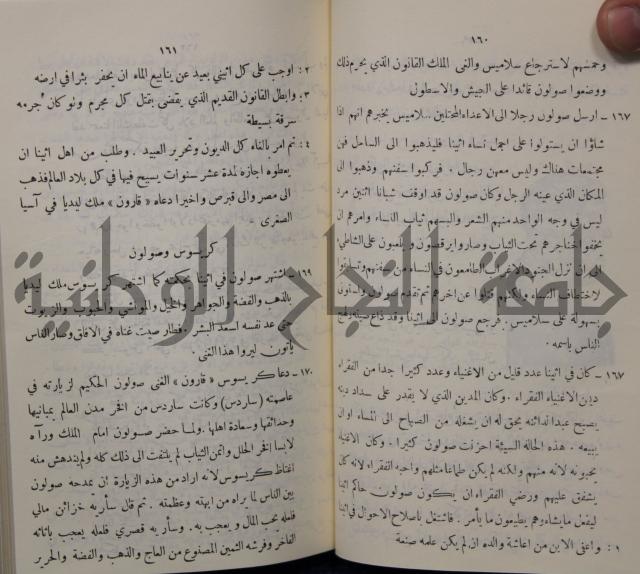 ١٦٠
وحمسهم لاسترجاع سلاميس والغى الملك القانون الذي يحرم ذلك
ووضعوا صولون قائدا على الجيش والاسطول
١٦٧ - ارسل صولون رجلا الى الاعداء المحتلين سلاميس يخبرهم انهم اذا
شاؤا ان يستولوا على اجمل نساء اثينا فليذهبوا الى الساحل فهن
مجتمعات هناك وليس معهن رجال . فركبوا سفنهم وذهبوا الى
المكان الذي عينه الرجل وكان صولون قد اوقف شبانا اثنين مرد
ليس في وجه الواحد منهم الشعر والبسهم ثياب النساء وامرهم ان
يخفوا خناجرهم تحت الثياب وصاروا يرقصون ويلعبون على الشاطئ
الى ان نزل الجنود الاغراب الطامعون في النساء من سفنهم
لاختطاف النساء ولكنهم قتلوا عن اخرهم ثم تقدم صولون
بسهولة على سلاميس . فرجع صولون الى اثينا وقد ذاع صيته
الناس باسمه .
١٦٧ - كان في اثينا عدد قليل من الاغنياء وعدد كثير جدا من الفقراء
دين الاغنياء الفقراء . وكان المدين الذي لا يقدر على سداد دينه
يصبح عبدا لدائنه يحق له ان يشغله من الصباح الى المساء اوان
يبيعه . هذه الحالة السيئة احزنت صولون كثيرا . وكان الاغنياء
يحبونه لانه منهم ولكنه لم يكن طماعا مثلهم واحبه الفقراء لانه كان
يشفق عليهم ورضي الفقراء ان يكون صولون حاكم اثينا
ليفعل ما يشاء وهم يطيعون ما يأمر . فاشتغل باصلاح الاحوال في اثينا
١ : واعفى الابن من اعاشة والده ان لم يكن علمه صنعة
١٦١
٢ : اوجب على كل اثيني بعيد عن ينابيع الماء ان يحفر بئرا في ارضه
٣ : وابطل القانون القديم الذي يقضي بقتل كل مجرم ولو كان جرمه
سرقة بسيطة
٤ : تم امر بالغاء كل الديون وتحرير العبيد . وطلب من اهل اثينا ان
يعطوه اجازة لمدة عشر سنوات يسيح فيها في كل بلاد العالم فذهب
الى مصر والى قبرص واخيرا دعاه « قارون » ملك ليديا في آسيا
الصغرى .
كريسوس وصولون
١٦٩ - اشتهر صولون في اثينا بحكمته كما اشتهر كريسوس ملك ليديا
بالذهب والفضة والجواهر والخيل والمواشي والحبوب والزيوت
حتى عد نفسه اسعد البشر . فطار صيت غناه في الافاق وصار الناس
يأتون ليروا هذا الغنى .
١٧٠ - دعا كريسوس « قارون » الغنى صولون الحكيم لزيارته في
عاصمته ( ساردس ) وكانت ساردس من افخر مدن العالم بمبانيها
وحدائقها وسعادة اهلها . ولما حضر صولون امام الملك ورآه
لابسا افخر الحلل واثمن الثياب لم يلتفت الى ذلك كله ولم يندهش منه
اغتاظ كريسوس لانه اراد من هذه الزيارة ان يمدحه صولون
بين الناس لما يراه من ابهته وعظمته . ثم قال سأريه خزائن مالي
فلعله يحب المال و يعجب به . وسأريه قصري فلعله يعجب باثاثه
الفاخر وفرشه الثمين المصنوع من العاج والذهب والفضة والحرير
جامعة النجاح الوطنية